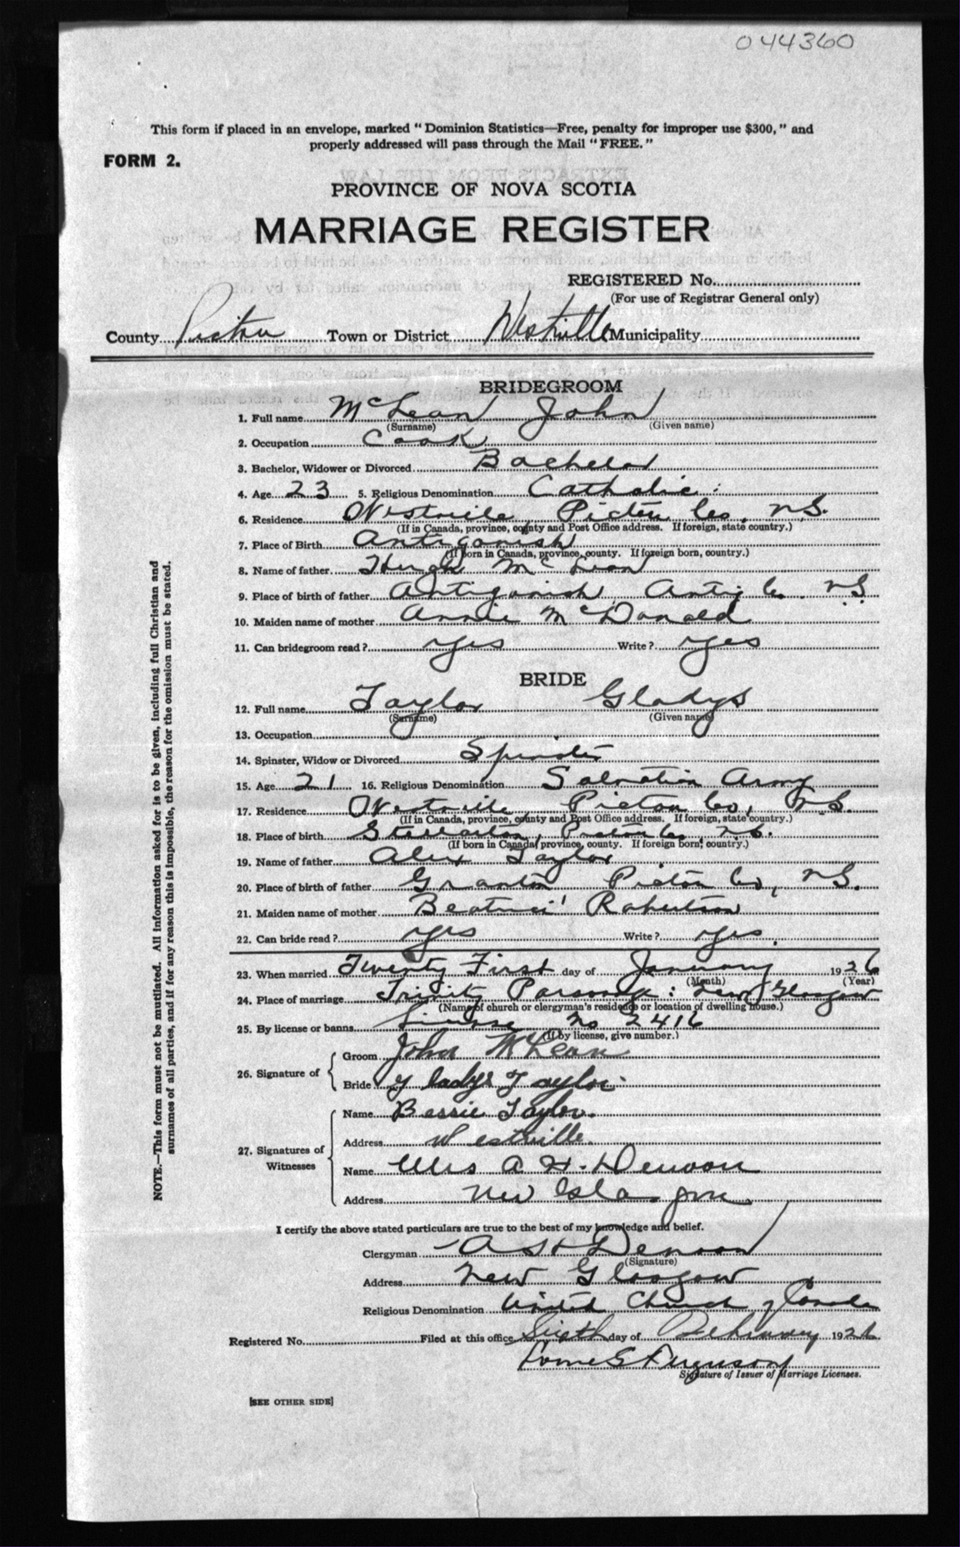 044360
This form if placed in an envelope, marked "Dominion Statistics—Free, penalty for improper use $300," and
properly addressed will pass through the Mail "FREE."
FORM 2.
PROVINCE OF NOVA SCOTIA
MARRIAGE REGISTER
REGISTERED No.
(For use of Registrar General only)
County Pictou Town or District Westville Municipality
BRIDEGROOM
1. Full name McLean John
(Surname) (Given name)
2. Occupation Cook
3. Bachelor, Widower or Divorced Bachelor
4. Age 23 5. Religious Denomination Catholic
6. Residence Westville Pictou Co. N.S.
(If in Canada, province, county and Post Office address. If foreign, state country.)
7. Place of Birth Antigonish
(If born in Canada, province, county. If foreign born, country.)
8. Name of father Hugh McLean
9. Place of birth of father Antigonish Antig Co. N.S.
10. Maiden name of mother Annie McDonald
11. Can bridegroom read? Yes Write? Yes
BRIDE
12. Full name Taylor Gladys
(Surname) (Given name)
13. Occupation
14. Spinster, Widow or Divorced Spinster
15. Age 21 16. Religious Denomination Salvation Army
17. Residence Westville Pictou Co, N.S.
(If in Canada, province, county and Post Office address. If foreign, state country.)
18. Place of birth Stellarton, Pictou Co. N.S.
(If born in Canada, province, county. If foreign born, country.)
19. Name of father Alex Taylor
20. Place of birth of father Granton Pictou Co, N.S.
21. Maiden name of mother Beatrice Robertson
22. Can bride read? Yes Write? Yes.
23. When married Twenty First day of January 1926
(Month) (Year)
24. Place of marriage Trinity Parsonage: New Glasgow
(Name of church or clergyman's residence or location of dwelling house.)
25. By license or banns License No 2416
(If by license, give number.)
26. Signature of
Groom John McLean
Bride Gladys Taylor.
27. Signatures of Witnesses
Name Bessie Taylor.
Address Westville.
Name Mrs A. H. Denoon
Address New Glasgow
I certify the above stated particulars are true to the best of my knowledge and belief.
Clergyman A H Denoon
(Signature)
Address New Glasgow
Religious Denomination United Church of Canada
Registered No. Filed at this office Sixth day of February 1926
Lorne G Ferguson
Signature of Issuer of Marriage Licenses.
[SEE OTHER SIDE]
NOTE.—This form must not be mutilated. All information asked for is to be given, including full Christian and
surnames of all parties, and if for any reason this is impossible, the reason for the omission must be stated.